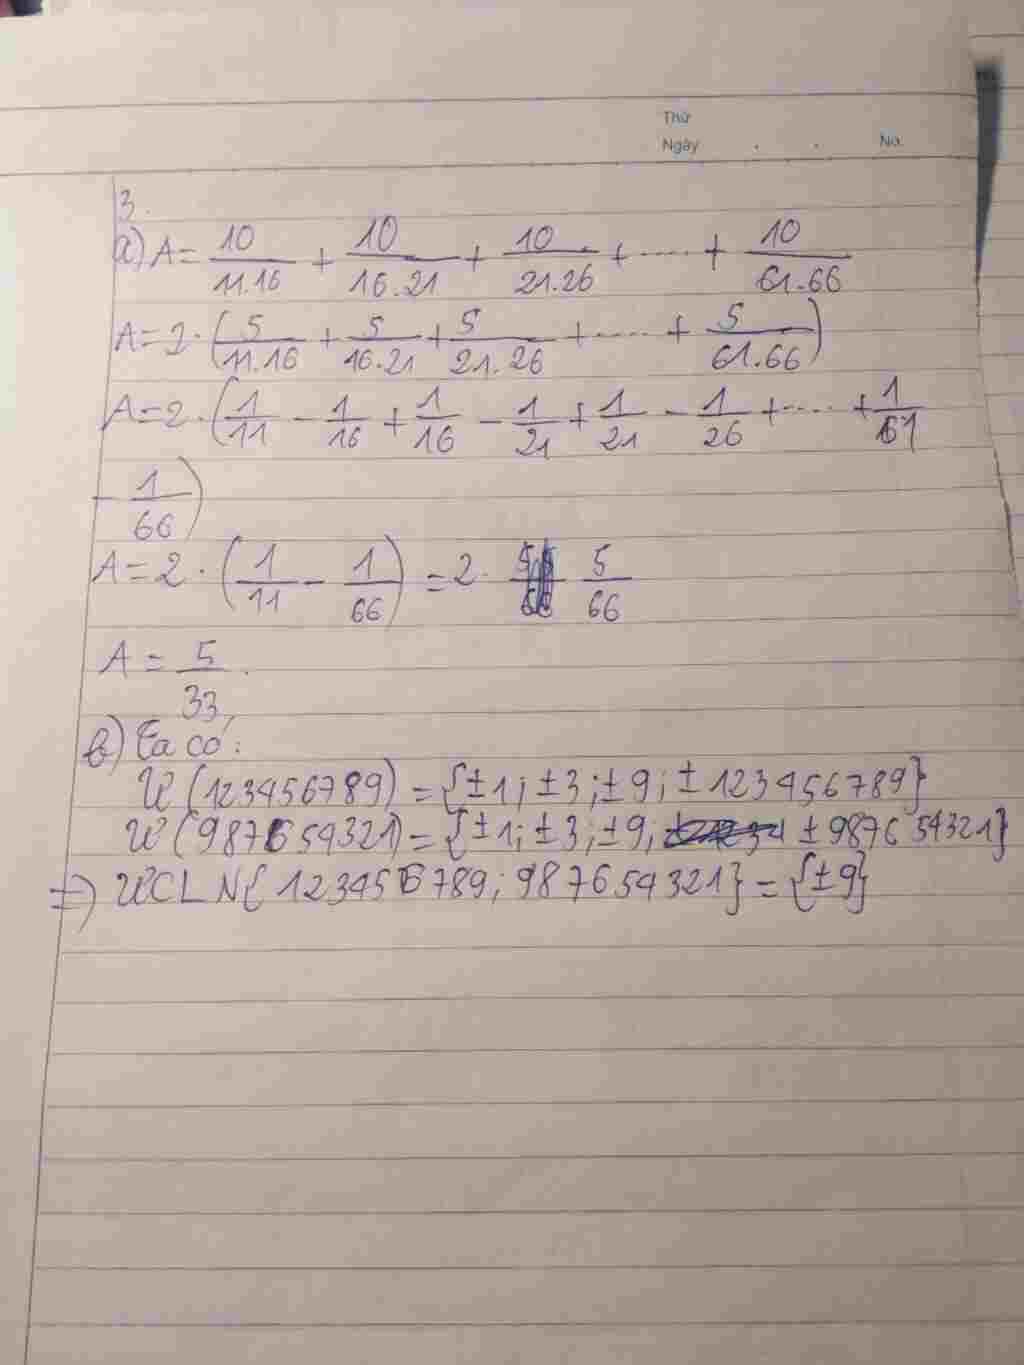 Thứ
Ngày . . No.
3.
a) A = 10/11.16 + 10/16.21 + 10/21.26 + ..... + 10/61.66
A = 2 . (5/11.16 + 5/16.21 + 5/21.26 + ..... + 5/61.66)
A = 2 . (1/11 - 1/16 + 1/16 - 1/21 + 1/21 - 1/26 + ..... + 1/61
- 1/66)
A = 2 . (1/11 - 1/66) = 2 . 5/66
A = 5/33.
b) Ta có:
Ư(123456789) = {±1; ±3; ±9; ±123456789}
Ư(987654321) = {±1; ±3; ±9; ±987654321}
=> ƯCLN{123456789; 987654321} = {±9}